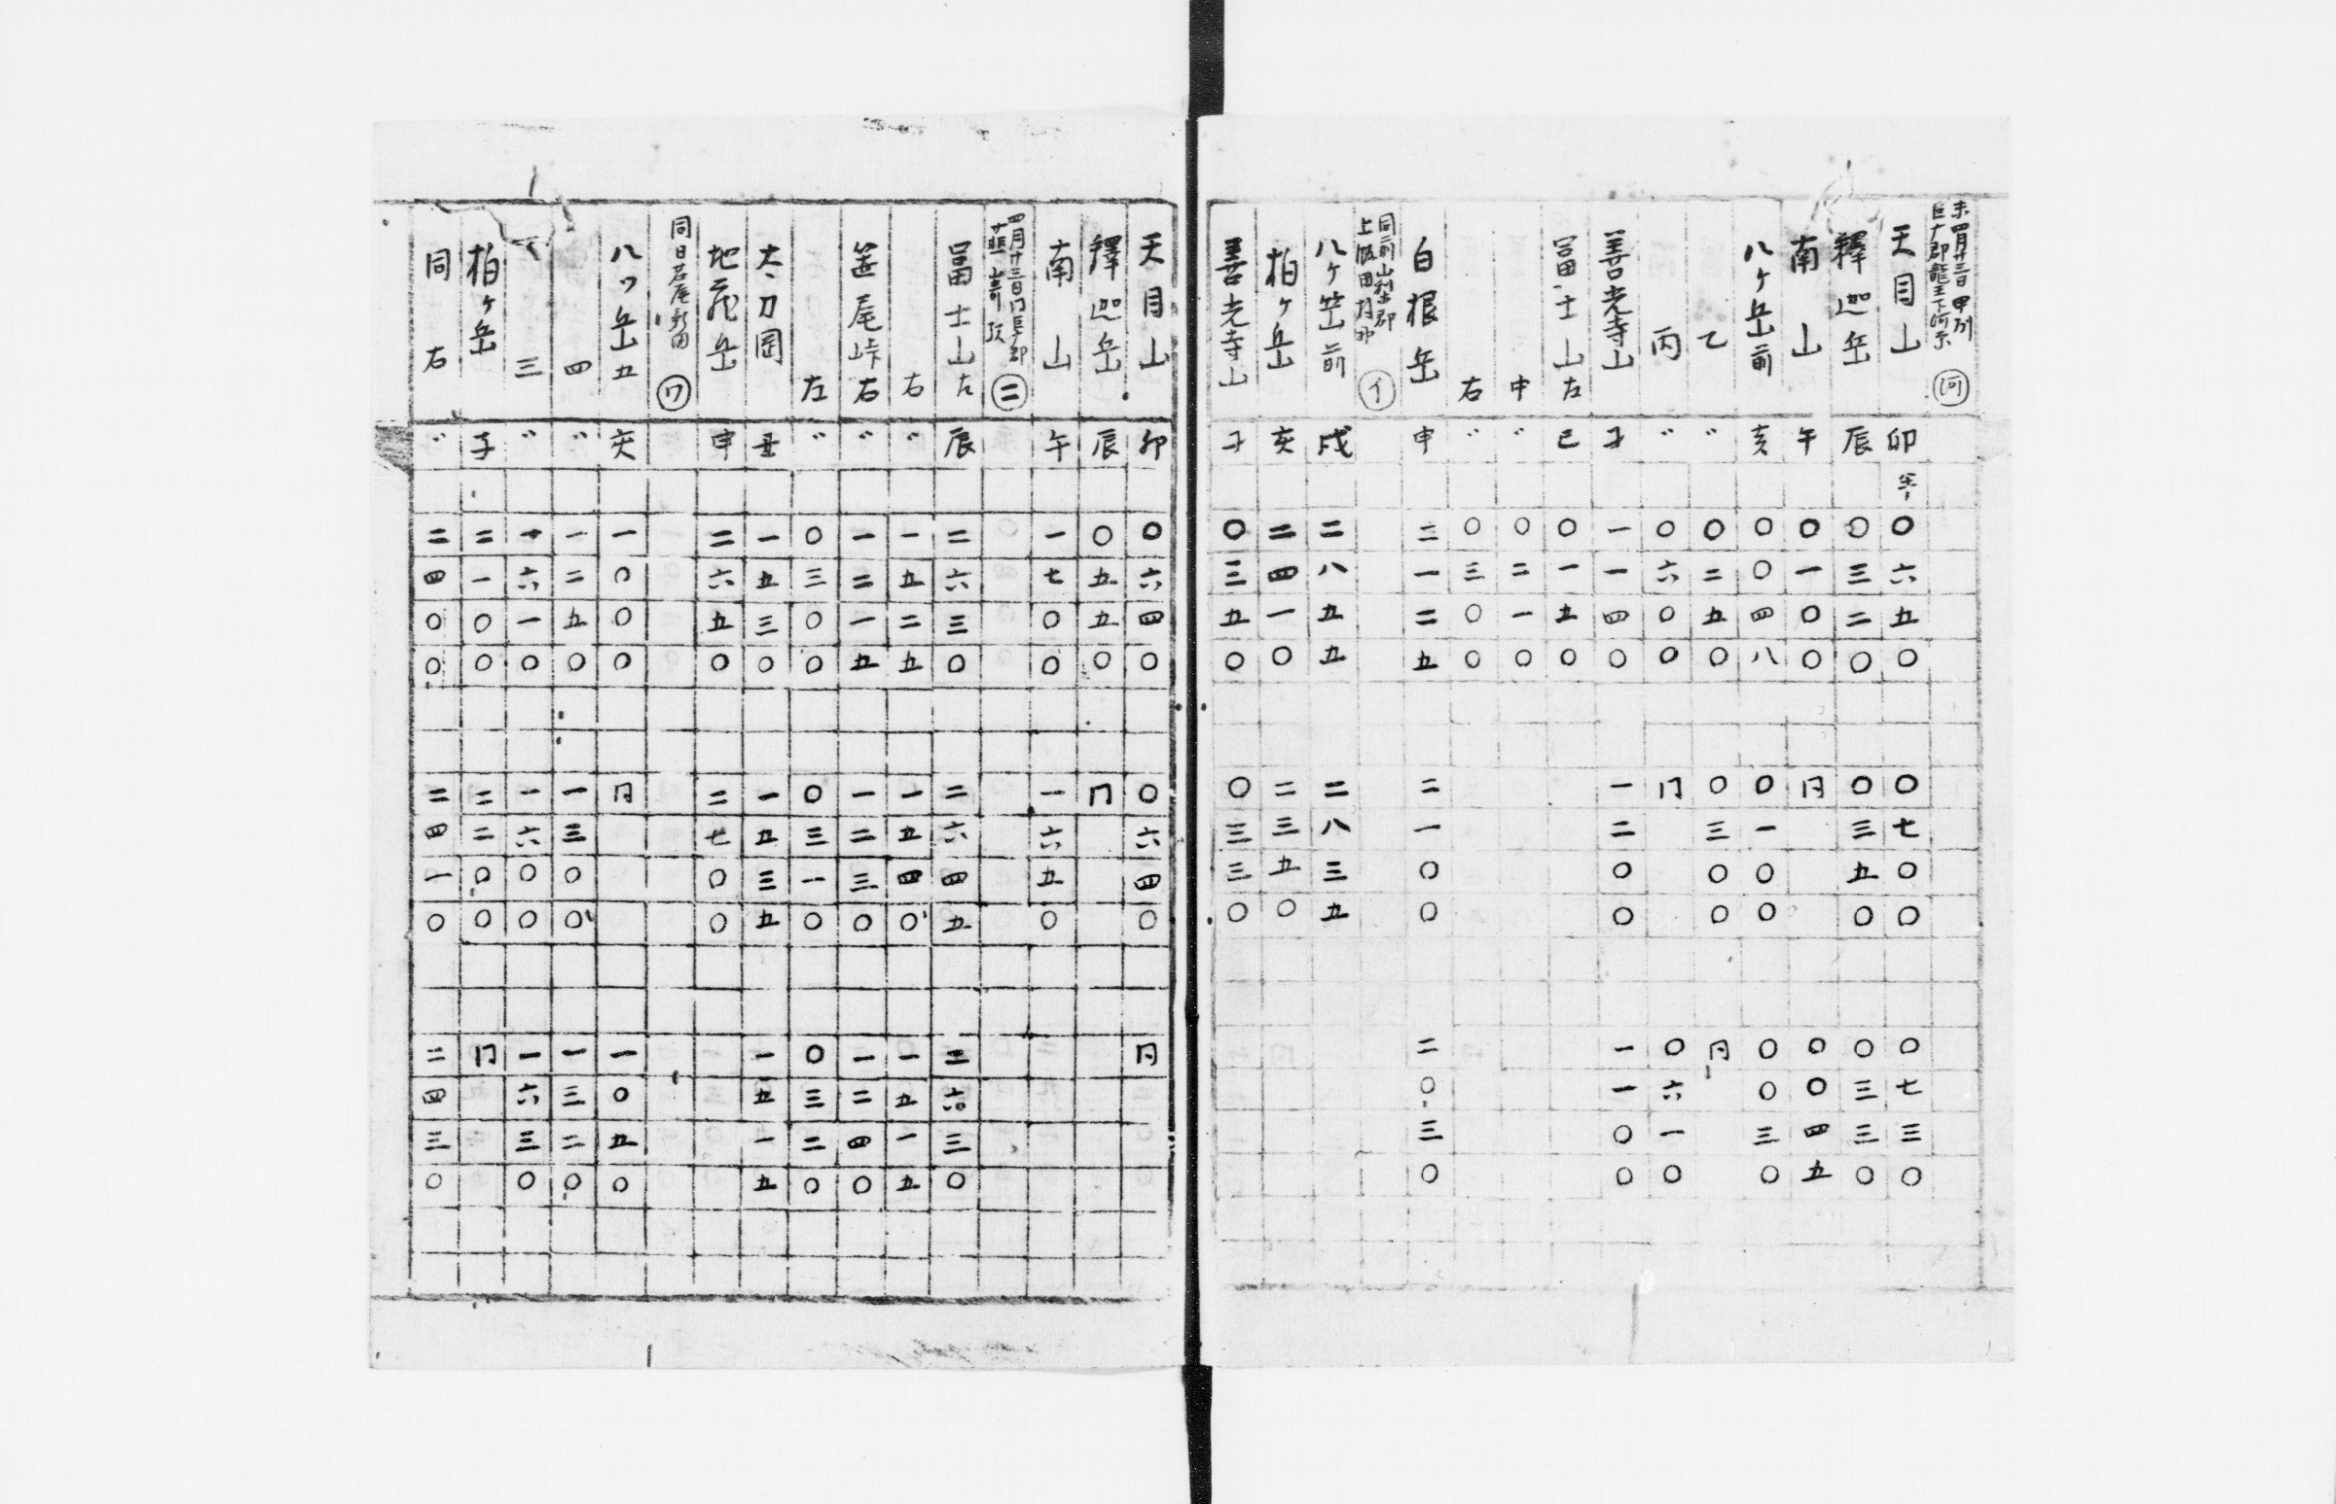 未四月廿三日 甲州
巨广郡龍王下河原 河
天目山 卯 半 〇六五〇 〇七〇〇 〇七三〇
釋迦岳 辰 〇三二〇 〇三五〇 〇三三〇
南山 午 〇一〇〇 同 〇〇四五
八ヶ岳前 亥 〇〇四八 〇一〇〇 〇〇三〇
乙 〃 〇二五〇 〇三〇〇 同
丙 〃 〇六〇〇 同 〇六一〇
善光寺山 子 一一四〇 一二〇〇 一一〇〇
冨士山左 巳 〇一五〇
中 〃 〇二一〇
右 〃 〇三〇〇
白根岳 申 二一二五 二一〇〇 二〇三〇
イ
八ヶ岳前 戌 二八五五 二八三五
柏ヶ岳 亥 二四一〇 二三五〇
善光寺山 子 〇三五〇 〇三三〇
天目山 卯 〇六四〇 〇六四〇 同
釋迦岳 辰 〇五五〇 同
南山 午 一七〇〇 一六五〇
四月廿三日 同巨郡
二
冨士山左 辰 二六三〇 二六四五 二六三〇
右 〃 一五二五 一五四〇 一五一五
笹尾峠右 〃 一二一五 一二三〇 一二四〇
左 〃 〇三〇〇 〇三一〇 〇三二〇
太刀岡 丑 一五三〇 一五三五 一五一五
地蔵岳 申 二六五〇 二七〇〇
同日若尾新田 ワ
八ッ岳五 亥 一〇〇〇 同 一〇五〇
四 〃 一二五〇 一三〇〇 一三二〇
三 〃 一六一〇 一六〇〇 一六三〇
柏ヶ岳 子 二一〇〇 二二〇〇 同
同右 〃 二四〇〇 二四一〇 二四三〇